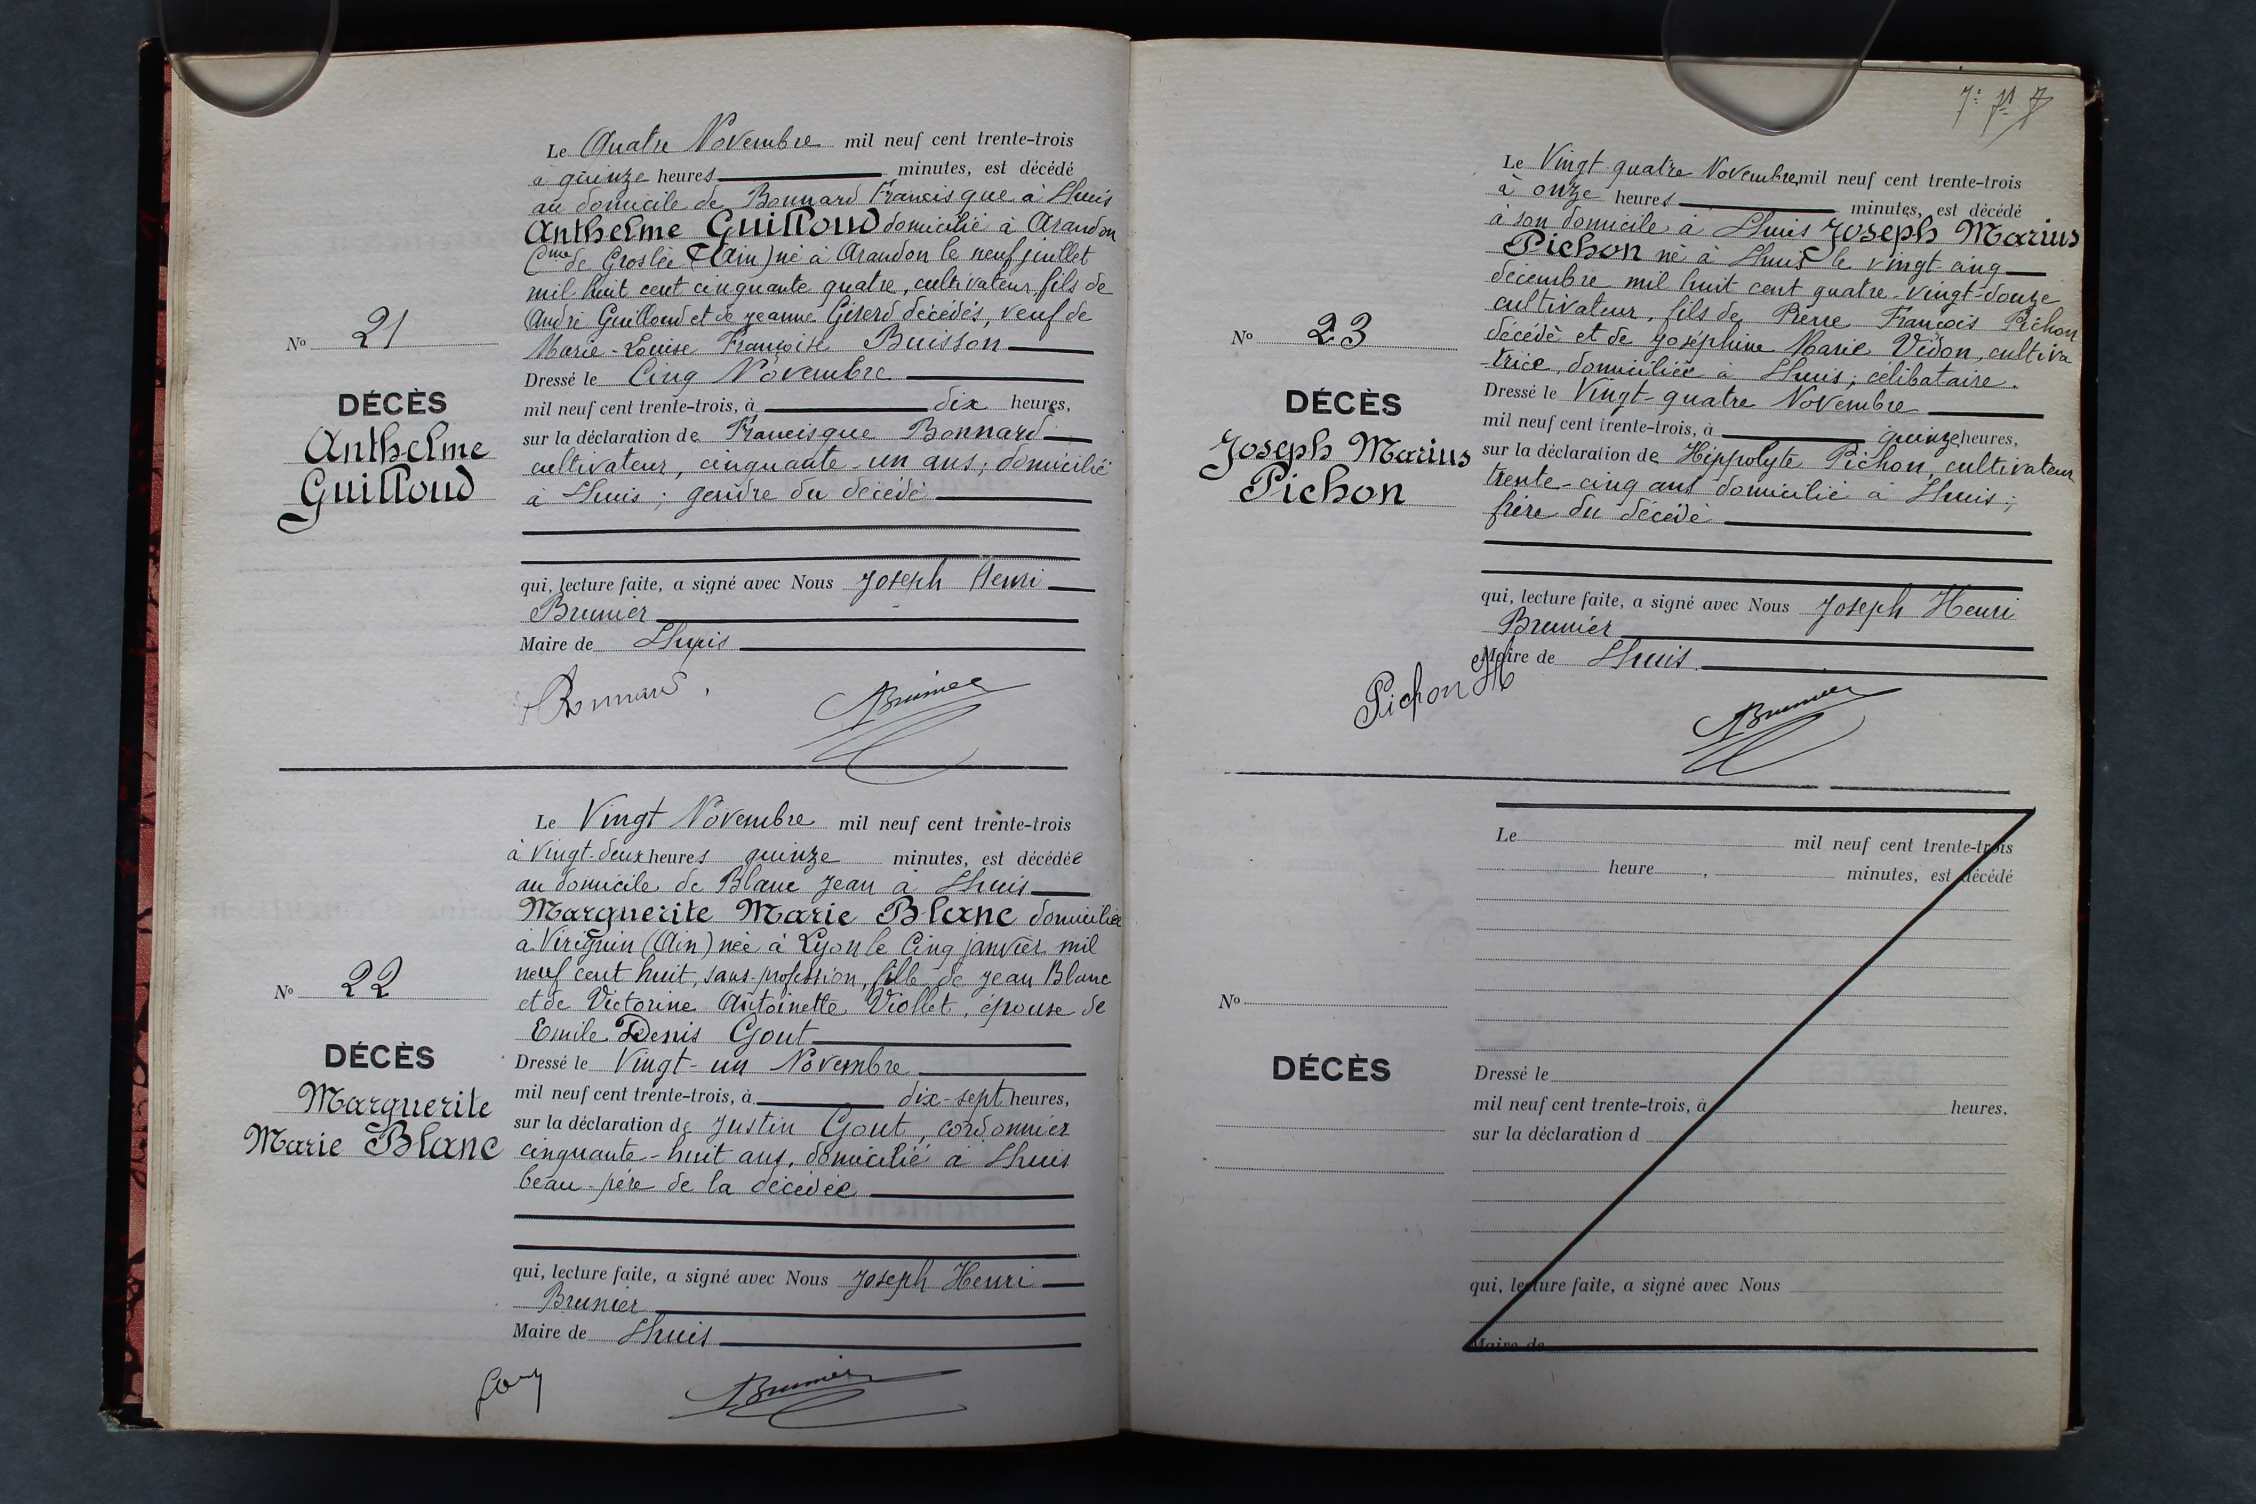 Le Quatre Novembre mil neuf cent trente-trois
à quinze heures minutes, est décédé
au domicile de Bonnard Francisque à Lhuis
Anthelme Guilloud domicilié à Arandon
Cne de Groslée (Ain) né à Arandon le neuf juillet
mil huit cent cinquante quatre, cultivateur, fils de
André Guilloud et de Jeanne Giserd décédés, veuf de
Marie-Louise Françoise Buisson
Dressé le Cinq Novembre
mil neuf cent trente-trois, à dix heures,
sur la déclaration de Francisque Bonnard
cultivateur, cinquante-un ans; domicilié
à Lhuis; gendre du décédé
qui, lecture faite, a signé avec Nous Joseph Henri
Brunier
Maire de Lhuis
Bonnard
Brunier
No 21
DÉCÈS
Anthelme
Guilloud
Le Vingt Novembre mil neuf cent trente-trois
à Vingt-deux heures quinze minutes, est décédée
au domicile de Blanc Jean à Lhuis
Marguerite Marie Blanc domiciliée
à Virignin (Ain) née à Lyon le Cinq janvier mil
neuf cent huit, sans profession, fille de Jean Blanc
et de Victorine Antoinette Viollet, épouse de
Emile Denis Gout
Dressé le Vingt-un Novembre
mil neuf cent trente-trois, à dix-sept heures,
sur la déclaration de Justin Gout, cordonnier
cinquante-huit ans, domicilié à Lhuis
beau-père de la décédée
qui, lecture faite, a signé avec Nous Joseph Henri
Brunier
Maire de Lhuis
Gout
Brunier
No 22
DÉCÈS
Marguerite
Marie Blanc
Le Vingt quatre Novembre mil neuf cent trente-trois
à onze heures minutes, est décédé
à son domicile à Lhuis Joseph Marius
Pichon né à Lhuis le vingt-cinq
décembre mil huit cent quatre-vingt-douze
cultivateur, fils de Pierre François Pichon
décédé et de Joséphine Marie Vidon, cultiva
trice, domiciliée à Lhuis; célibataire.
Dressé le Vingt-quatre Novembre
mil neuf cent trente-trois, à quinze heures,
sur la déclaration de Hippolyte Pichon, cultivateur
trente-cinq ans domicilié à Lhuis;
frère du décédé
qui, lecture faite, a signé avec Nous Joseph Henri
Brunier
Maire de Lhuis
Pichon H
Brunier
No 23
DÉCÈS
Joseph Marius
Pichon
Le mil neuf cent trente-trois
heure , minutes, est décédé
Dressé le
mil neuf cent trente-trois, à heures,
sur la déclaration d
qui, lecture faite, a signé avec Nous
Maire de
No
DÉCÈS